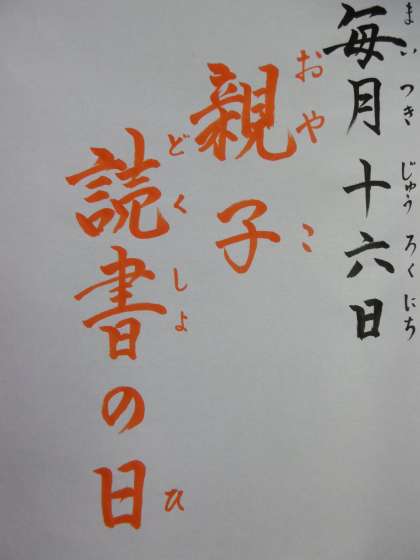 毎月十六日
まいつきじゅうろくにち
親子
おやこ
読書の日
どくしょひ